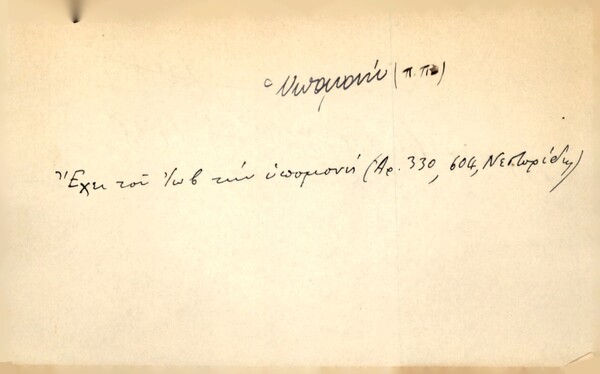 ὑπομονή (π.π.)
Ἔχει τοῦ Ἰωβ τήν ὑπομονή (Ἀρ. 330, 604, Νεστορίδης)